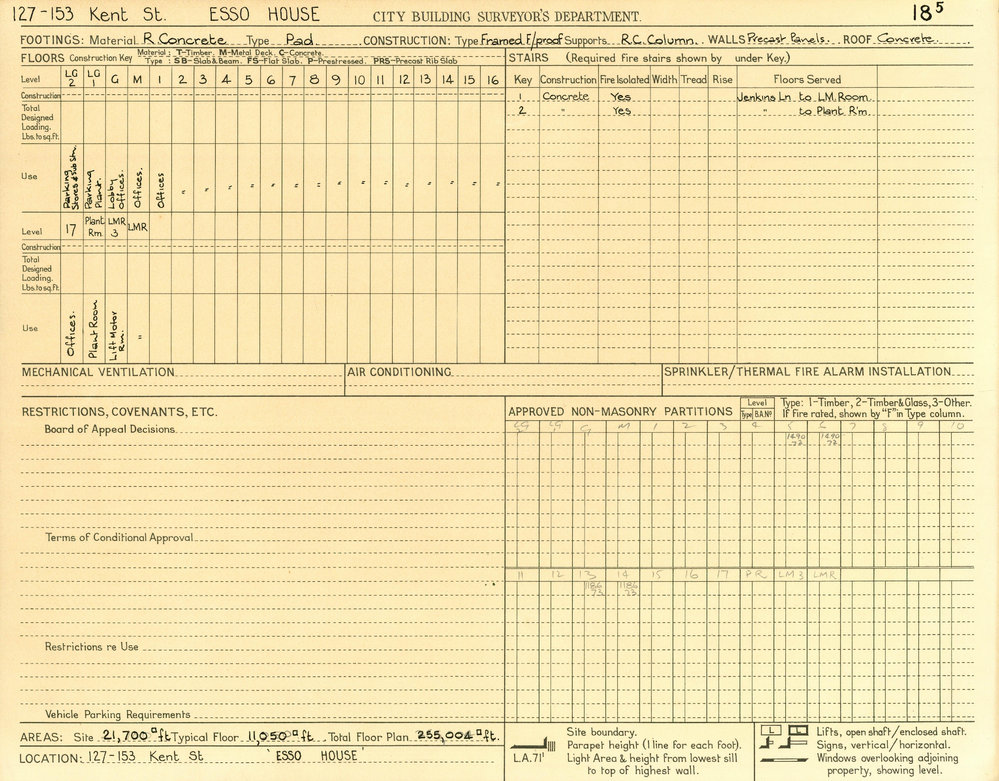 127-153 Kent St. ESSO HOUSE CITY BUILDING SURVEYOR'S DEPARTMENT. 18⁵
FOOTINGS: Material R.Concrete Type Pad CONSTRUCTION: Type Framed F/proof Supports R.C. Column. WALLS Precast Panels. ROOF Concrete.
FLOORS Construction Key Material: T-Timber. M-Metal Deck. C-Concrete.
Type: SB-Slab & Beam. FS-Flat Slab. P-Prestressed. PRS-Precast Rib Slab
STAIRS (Required fire stairs shown by under Key.)
Level LG 2 LG 1 G M 1 2 3 4 5 6 7 8 9 10 11 12 13 14 15 16
Key Construction Fire Isolated Width Tread Rise Floors Served
Construction
1 Concrete Yes Jenkins Ln to L.M. Room.
2 " Yes " to Plant R'm.
Total
Designed
Loading.
Lbs. to sq. ft.
Use Parking Stores & Sub Stn. Parking Plant. Lobby Offices. Offices. Offices " " " " " " " " " " " " " " "
Level 17 Plant Rm LMR 3 LMR
Construction
Total
Designed
Loading.
Lbs. to sq. ft.
Use Offices. Plant Room Lift Motor Rm. "
MECHANICAL VENTILATION AIR CONDITIONING SPRINKLER/THERMAL FIRE ALARM INSTALLATION
RESTRICTIONS, COVENANTS, ETC.
APPROVED NON-MASONRY PARTITIONS Level Type B.A.Nº Type: 1-Timber, 2-Timber & Glass, 3-Other.
If fire rated, shown by "F" in Type column.
Board of Appeal Decisions.
LG LG G M 1 2 3 4 5 6 7 8 9 10
1490 1490
72 72
Terms of Conditional Approval
11 12 13 14 15 16 17 PR LM3 LMR
1186 1186
73 73
Restrictions re Use
Vehicle Parking Requirements
AREAS: Site 21,700 □ft Typical Floor 11,050 □ft. Total Floor Plan 255,004 □ft.
LOCATION: 127-153 Kent St 'ESSO HOUSE'
Site boundary.
Parapet height (1 line for each foot).
L.A. 71' Light Area & height from lowest sill
to top of highest wall.
L L Lifts, open shaft/enclosed shaft.
Signs, vertical/horizontal.
Windows overlooking adjoining
property, showing level.